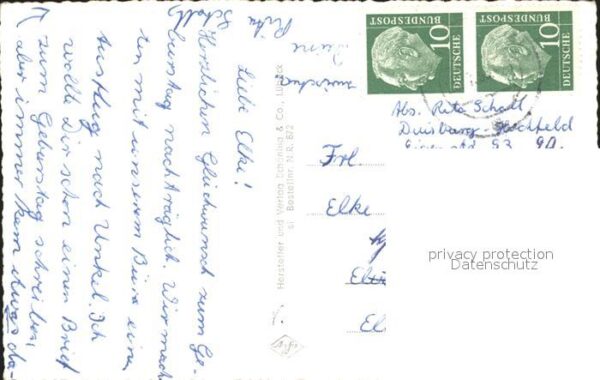 Liebe Elke!
Herzlichen Glückwunsch zum Ge-
burtstag nachträglich. Wir mach-
ten mit unserem Büro einen
Ausflug nach Unkel. Ich
wollte Dir schon einen Brief
zum Geburtstag schreiben,
aber immer kam etwas da-
zwischen
Deine
Rita
Schall
Hersteller und Verlag Schöning & Co., Lübeck
Bestellnr. N.R. 6/2
Agfa
10
DEUTSCHE
BUNDESPOST
10
DEUTSCHE
BUNDESPOST
Abs. Rita Schall
Duisburg-Hochfeld
Frl.
Elke
privacy protection
Datenschutz